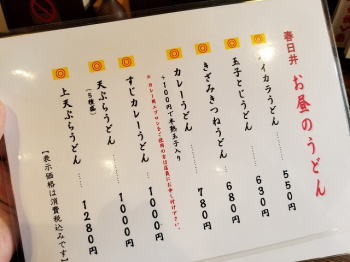 春日井 お昼のうどん
ハイカラうどん …… 550円
玉子とじうどん …… 630円
きざみきつねうどん …… 680円
カレーうどん …… 780円
+100円で半熟玉子入り
※カレー用エプロンをご使用の方は店員にお申し付け下さい。
すじカレーうどん …… 1000円
天ぷらうどん …… 1000円
(5種盛)
上天ぷらうどん …… 1280円
【表示価格は消費税込みです】